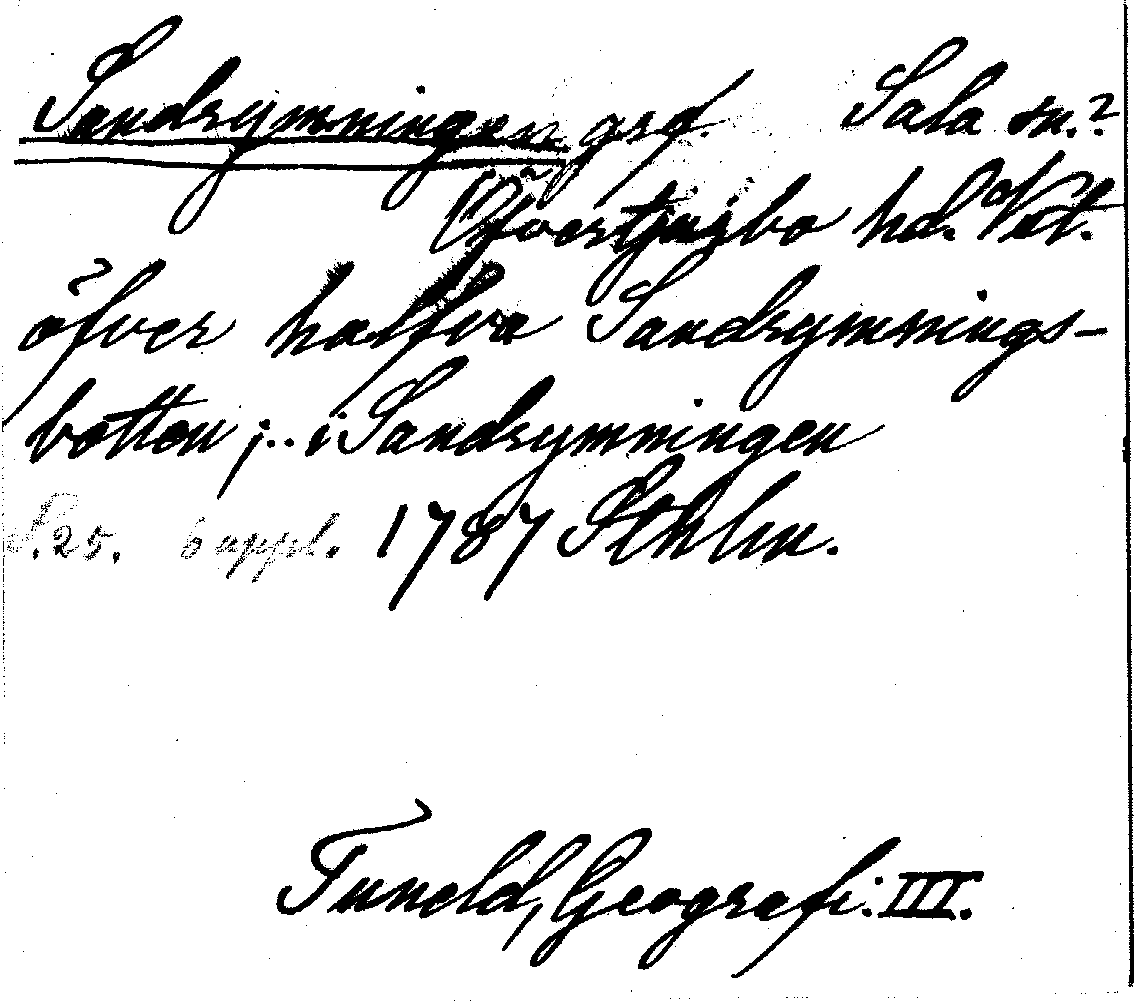 Sandrymningen grd. Sala sn.?
Öfvertjurbo hd. Vst.
öfver halfva Sandrymnings-
botten ;.. i Sandrymningen
S. 25. 6 uppl. 1787 Sthlm.
Tuneld, Geografi. III.